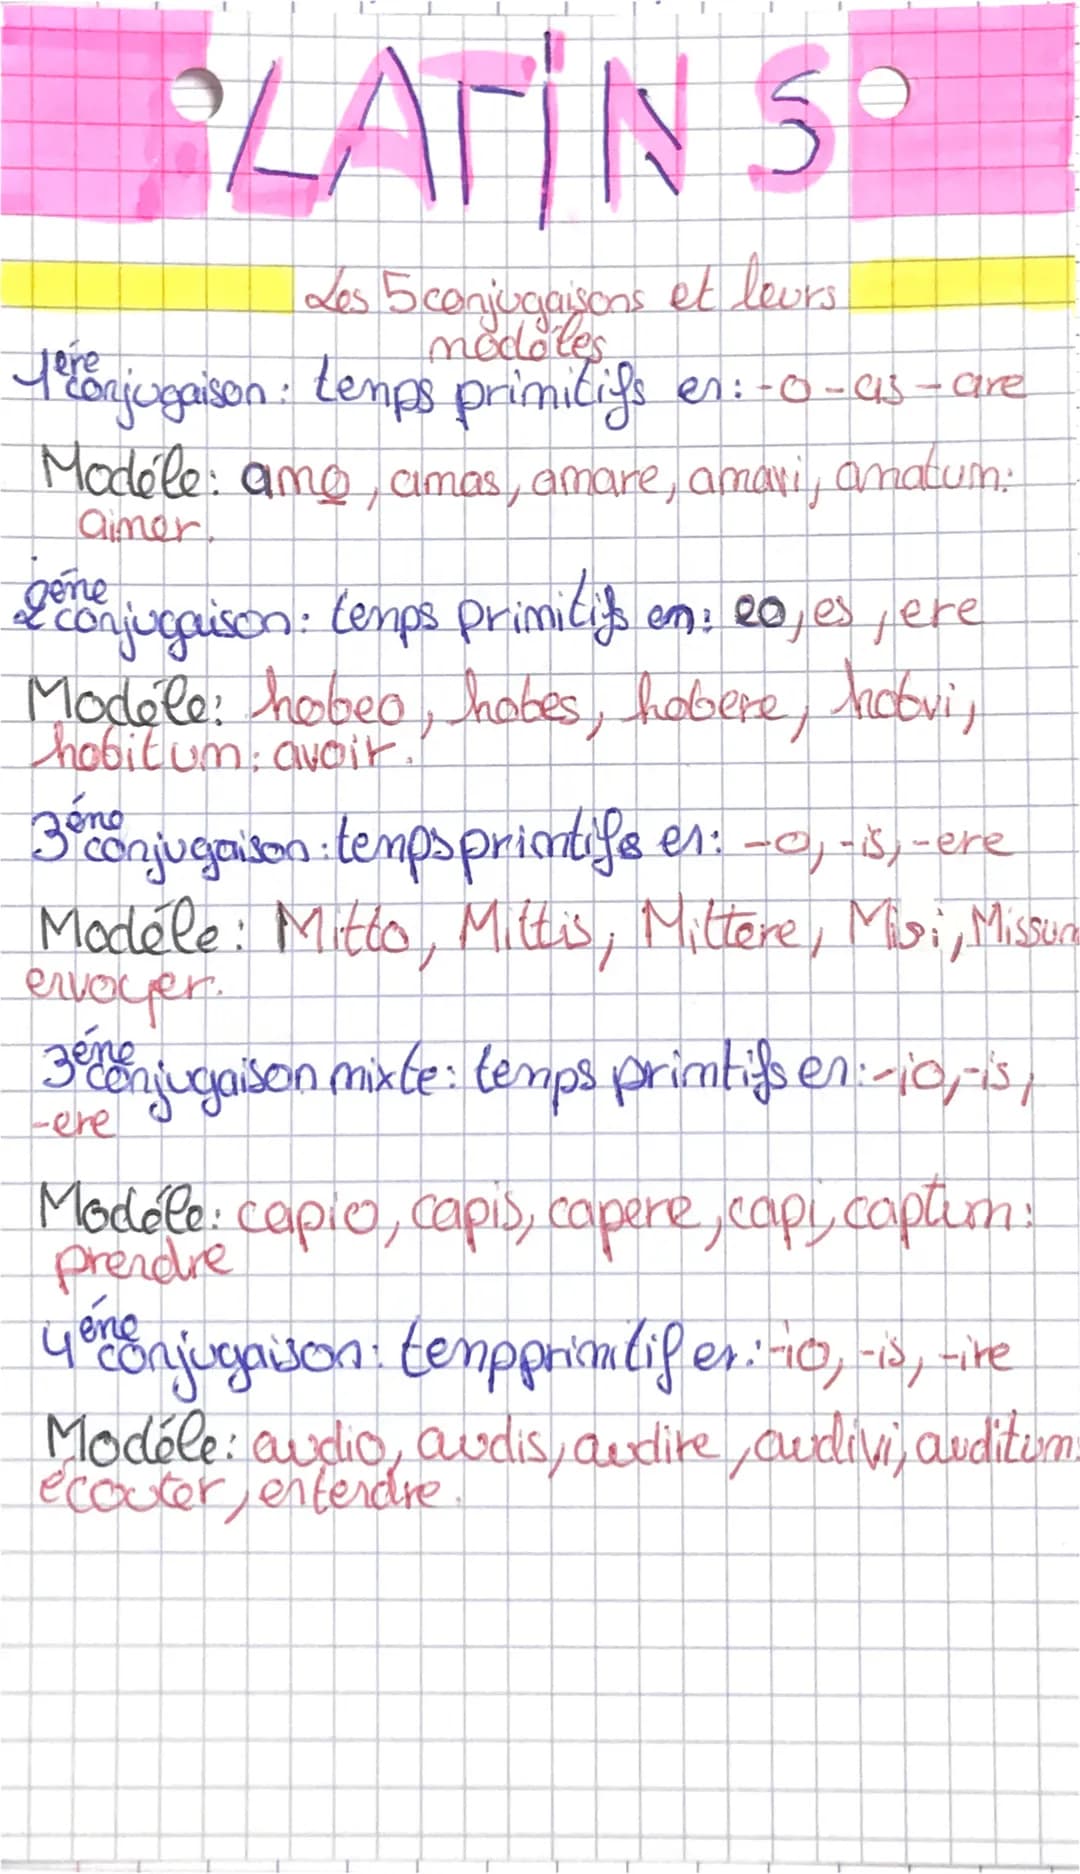 LATIN S
Les 5 conjugaisons et leurs
modèles
1ère conjugaison : temps primitifs en : -o -as -are
Modèle : amo, amas, amare, amavi, amatum :
aimer.
2ème conjugaison : temps primitifs en : eo, es, ere
Modèle : habeo, habes, habere, habui,
habitum : avoir.
3ème conjugaison : temps primtifs en : -o, -is, -ere
Modèle : Mitto, Mittis, Mittere, Misi, Missum
envoyer.
3ème conjugaison mixte : temps primtifs en : -io, -is,
-ere
Modèle : capio, capis, capere, capi, captum :
prendre
4ème conjugaison : temp primitif en : -io, -is, -ire
Modèle : audio, audis, audire, audivi, auditum :
écouter, entendre.